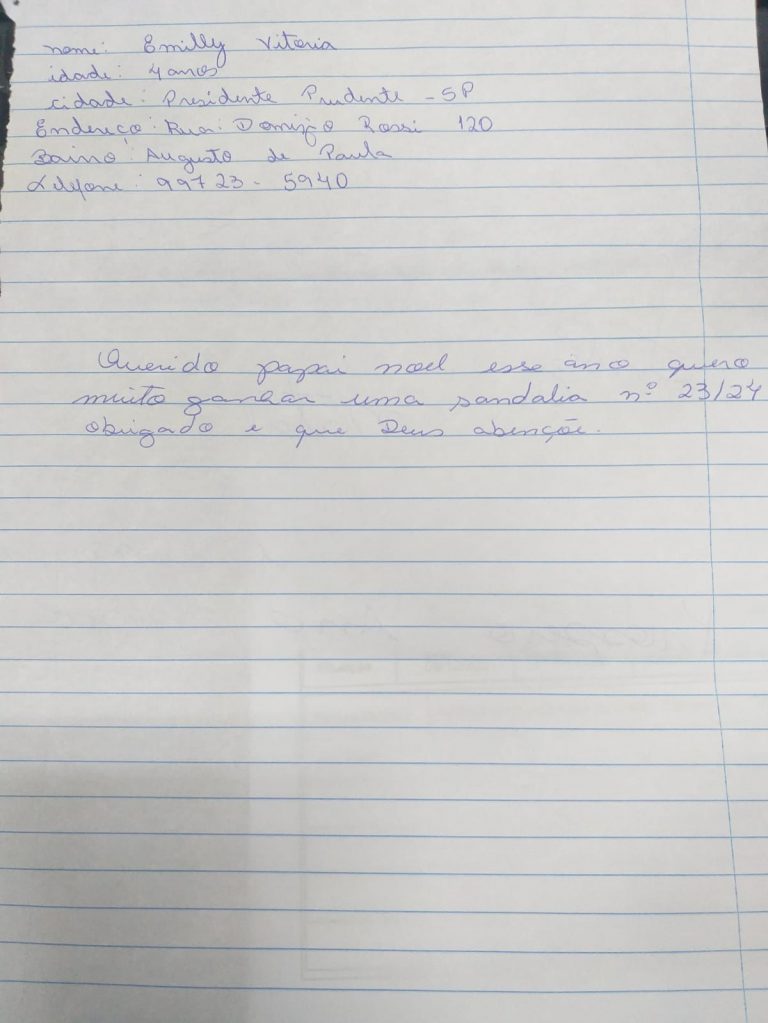 nome: Emilly Vitoria
idade: 4 anos
cidade: Presidente Prudente - SP
Endereço: Rua: Rossi 120
Bairro: Augusto de Paula
telefone: 99723-5940
Querido papai noel esse ano quero
muito ganhar uma sandalia nº 23/24
obrigado e que Deus abençõe.